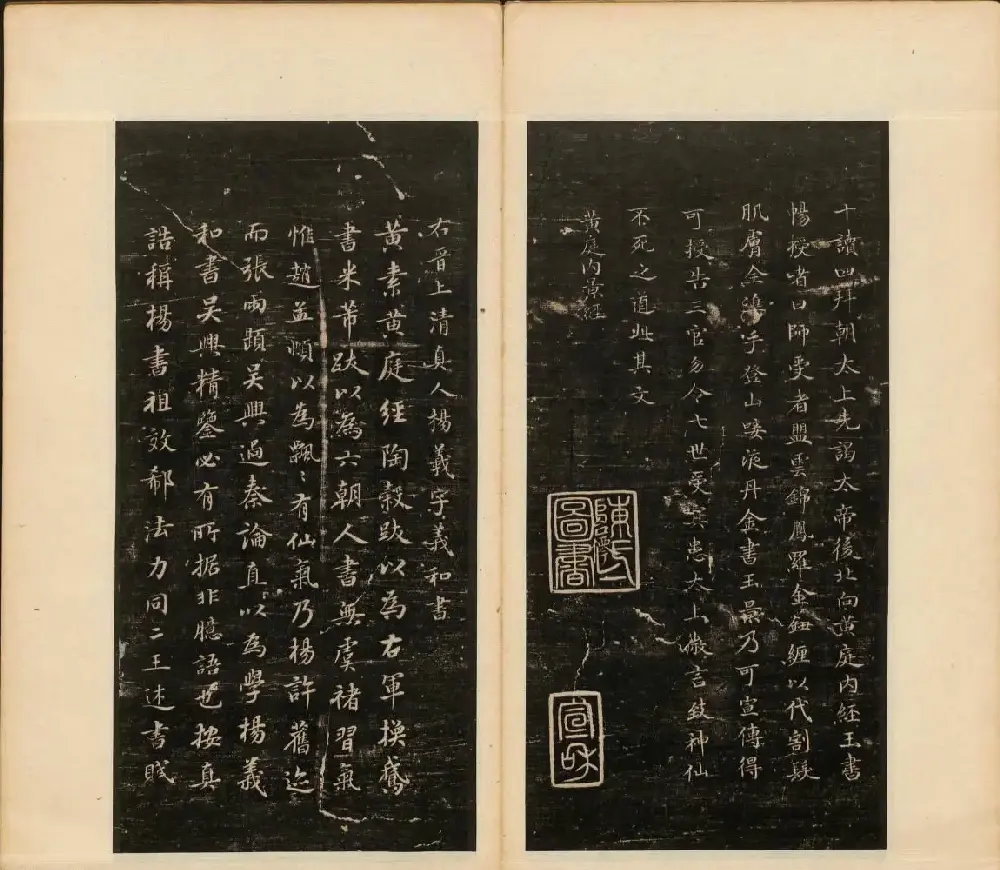 十讀四拜朝太上先謁太帝後北向黃庭內經玉書
暢授者曰師受者盟雲錦鳳羅金鈕纏以代割髮
肌膚全携手登山歃液丹金書玉景乃可宣傳得
可授告三官勿令七世受冥患太上微言致神仙
不死之道此其文
黃庭內景經
陳氏圖書
宣和
右晉上清真人楊義字義和書
黃素黃庭經陶穀跋以為右軍換鵞
書米芾跋以為六朝人書無虞褚習氣
惟趙孟頫以為飄〻有仙氣乃楊許舊迹
而張雨題吳興過秦論直以為學楊義
和書吳興精鑒必有所据非臆語也按真
誥稱楊書祖效郗法力同二王述書賦